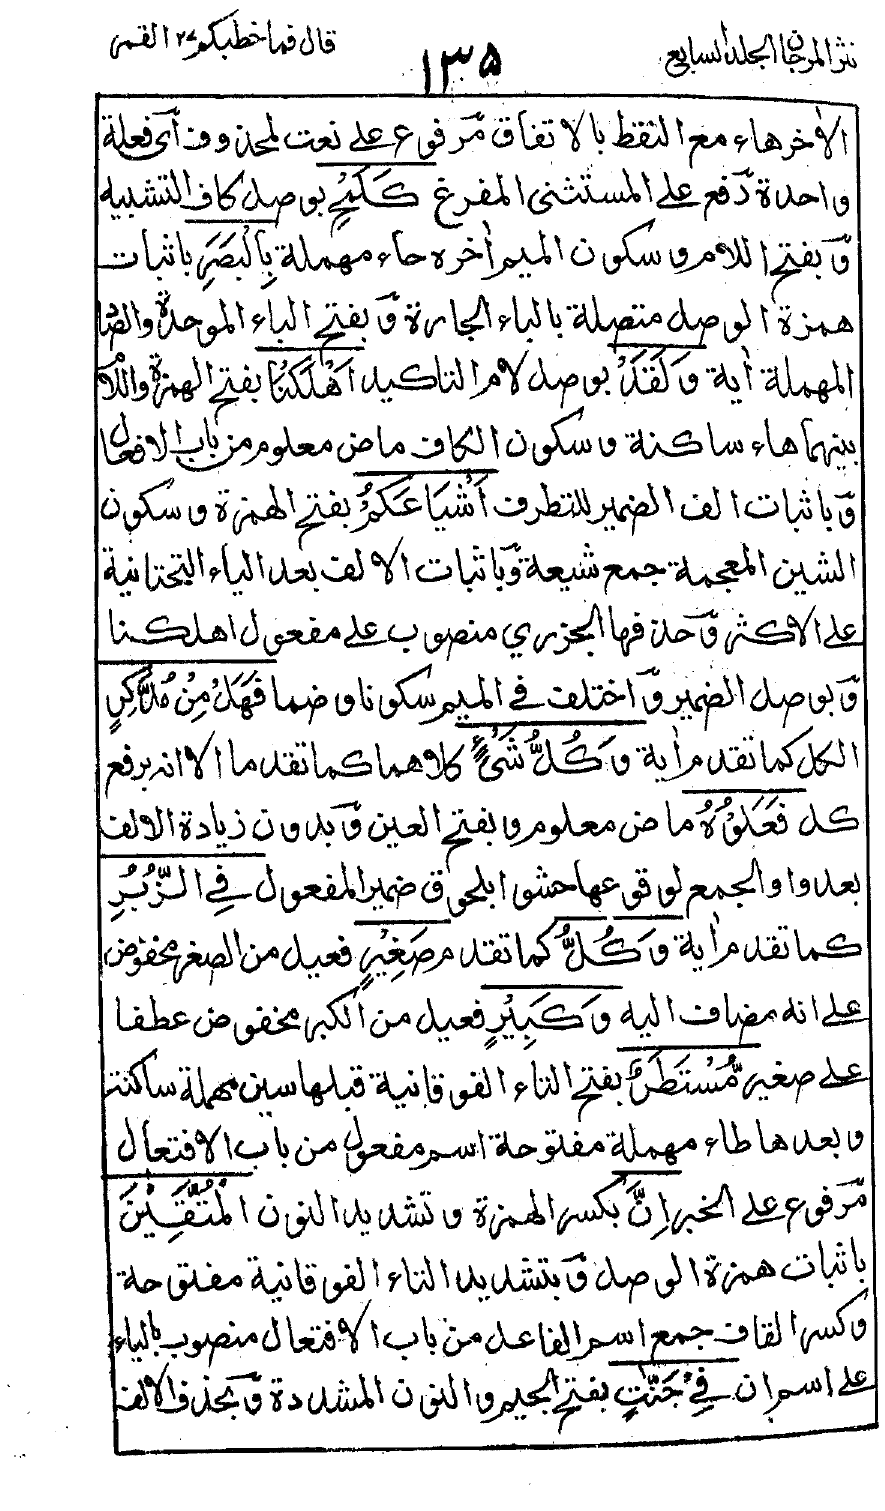 نثر المرجان الجلد السابع
١٣٥
قال فما خطبكم ٢٧ القمر
الاٰخر هاء مع النقط بالاتفاق مرفوع على نعت لمحذوف أى فعلة
واحدة دفع على المستثنى المفرغ كَلَمْحٍ بوصل كاف التشبيه
وبفتح اللام وسكون الميم اٰخره حاء مهملة بِالْبَصَرِ باثبات
همزة الوصل متصلة بالباء الجارة وبفتح الباء الموحدة والصاد
المهملة اٰية وَلَقَدْ بوصل لام التاكيد اَهْلَكْنَا بفتح الهمزة واللام
بينهما هاء ساكنة وسكون الكاف ماض معلوم من باب الافعال
وباثبات الف الضمير للتطرف اَشْيَاعَكُمْ بفتح الهمزة وسكون
الشين المعجمة جمع شيعة وباثبات الالف بعد الياء التحتانية
على الاكثر وحذفها الجزري منصوب على مفعول اهلكنا
وبوصل الضمير واختلف في الميم سكونا وضما فَهَلْ مِنْ مُّدَّكِرٍ
الكل كما تقدم اٰية وَكُلُّ شَيْءٍ كلاهما كما تقدما الا انه برفع
كل فَعَلُوْهُ ماض معلوم وبفتح العين وبدون زيادة الالف
بعد واو الجمع لوقوعها حشوا بلحوق ضمير المفعول فِي الزُّبُرِ
كما تقدم اٰية وَكُلُّ كما تقدم صَغِيْرٍ فعيل من الصغر مخفوض
على انه مضاف اليه وَكَبِيْرٍ فعيل من الكبر مخفوض عطفا
على صغير مُّسْتَطَرٌ بفتح التاء الفوقانية قبلها سين مهملة ساكنة
وبعدها طاء مهملة مفتوحة اسم مفعول من باب الافتعال
مرفوع على الخبر اِنَّ بكسر الهمزة وتشديد النون الْمُتَّقِيْنَ
باثبات همزة الوصل وبتشديد التاء الفوقانية مفتوحة
وكسر القاف جمع اسم الفاعل من باب الافتعال منصوب بالياء
على اسم ان فِيْ جَنّٰتٍ بفتح الجيم والنون المشددة وبحذف الالف